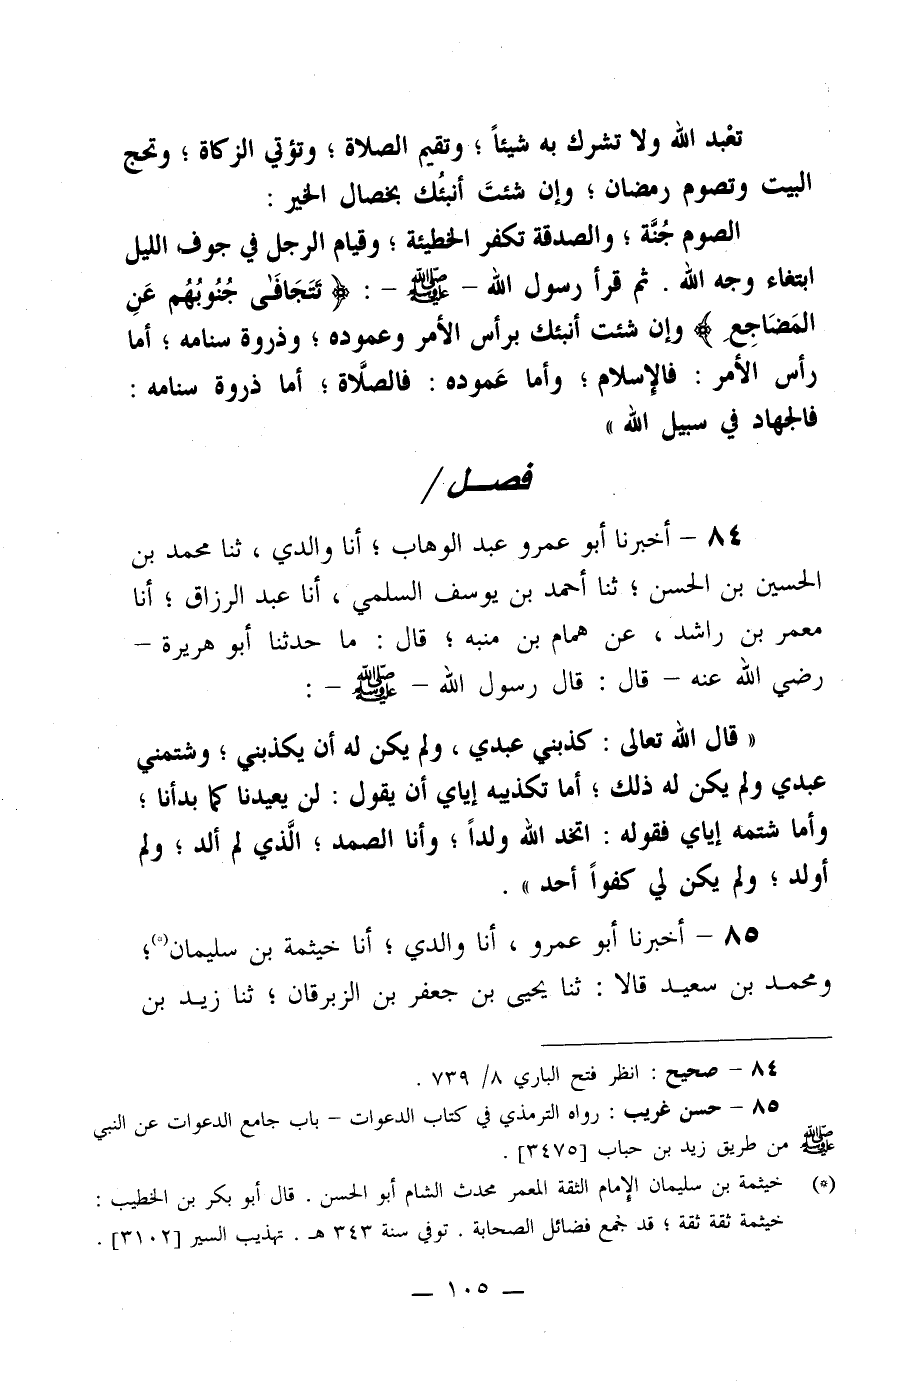 تعْبد الله ولا تشرك به شيئاً ؛ وتقيم الصلاة ؛ وتؤتي الزكاة ؛ وتحج
البيت وتصوم رمضان ؛ وإن شئتَ أنبئُك بخصال الخير :
الصوم جُنَّة ؛ والصدقة تكفر الخطيئة ؛ وقيام الرجل في جوف الليل
ابتغاء وجه الله . ثم قرأ رسول الله - ﷺ - : ﴿ تَتَجَافَىٰ جُنُوبُهُم عَنِ
المَضَاجِعِ ﴾ وإن شئت أنبئك برأس الأمر وعموده ؛ وذروة سنامه ؛ أما
رأس الأمر : فالإسلام ؛ وأما عَموده : فالصلَّاة ؛ أما ذروة سنامه :
فالجهاد في سبيل الله »
فصــل /
٨٤ - أخبرنا أبو عمرو عبد الوهاب ؛ أنا والدي ، ثنا محمد بن
الحسين بن الحسن ؛ ثنا أحمد بن يوسف السلمي ، أنا عبد الرزاق ؛ أنا
معمر بن راشد ، عن همام بن منبه ؛ قال : ما حدثنا أبو هريرة -
رضي الله عنه - قال : قال رسول الله - ﷺ - :
« قال الله تعالى : كذبني عبدي ، ولم يكن له أن يكذبني ؛ وشتمني
عبدي ولم يكن له ذلك ؛ أما تكذيبه إياي أن يقول : لن يعيدنا كما بدأنا ؛
وأما شتمه إياي فقوله : اتخد الله ولداً ؛ وأنا الصمد ؛ الَّذي لم ألد ؛ ولم
أولد ؛ ولم يكن لي كفواً أحد » .
٨٥ - أخبرنا أبو عمرو ، أنا والدي ؛ أنا خيثمة بن سليمان(*)؛
ومحمـد بن سعيـد قالا : ثنا يحيى بن جعفر بن الزبرقان ؛ ثنا زيـد بن
٨٤ - صحيح : انظر فتح الباري ٨/ ٧٣٩ .
٨٥ - حسن غريب : رواه الترمذي في كتاب الدعوات - باب جامع الدعوات عن النبي
ﷺ من طريق زيد بن حباب [٣٤٧٥] .
(*) خيثمة بن سليمان الإمام الثقة المعمر محدث الشام أبو الحسن . قال أبو بكر بن الخطيب :
خيثمة ثقة ثقة ؛ قد جُمع فضائل الصحابة . توفي سنة ٣٤٣ هـ . تهذيب السير [٣١٠٢] .
— ١٠٥ —